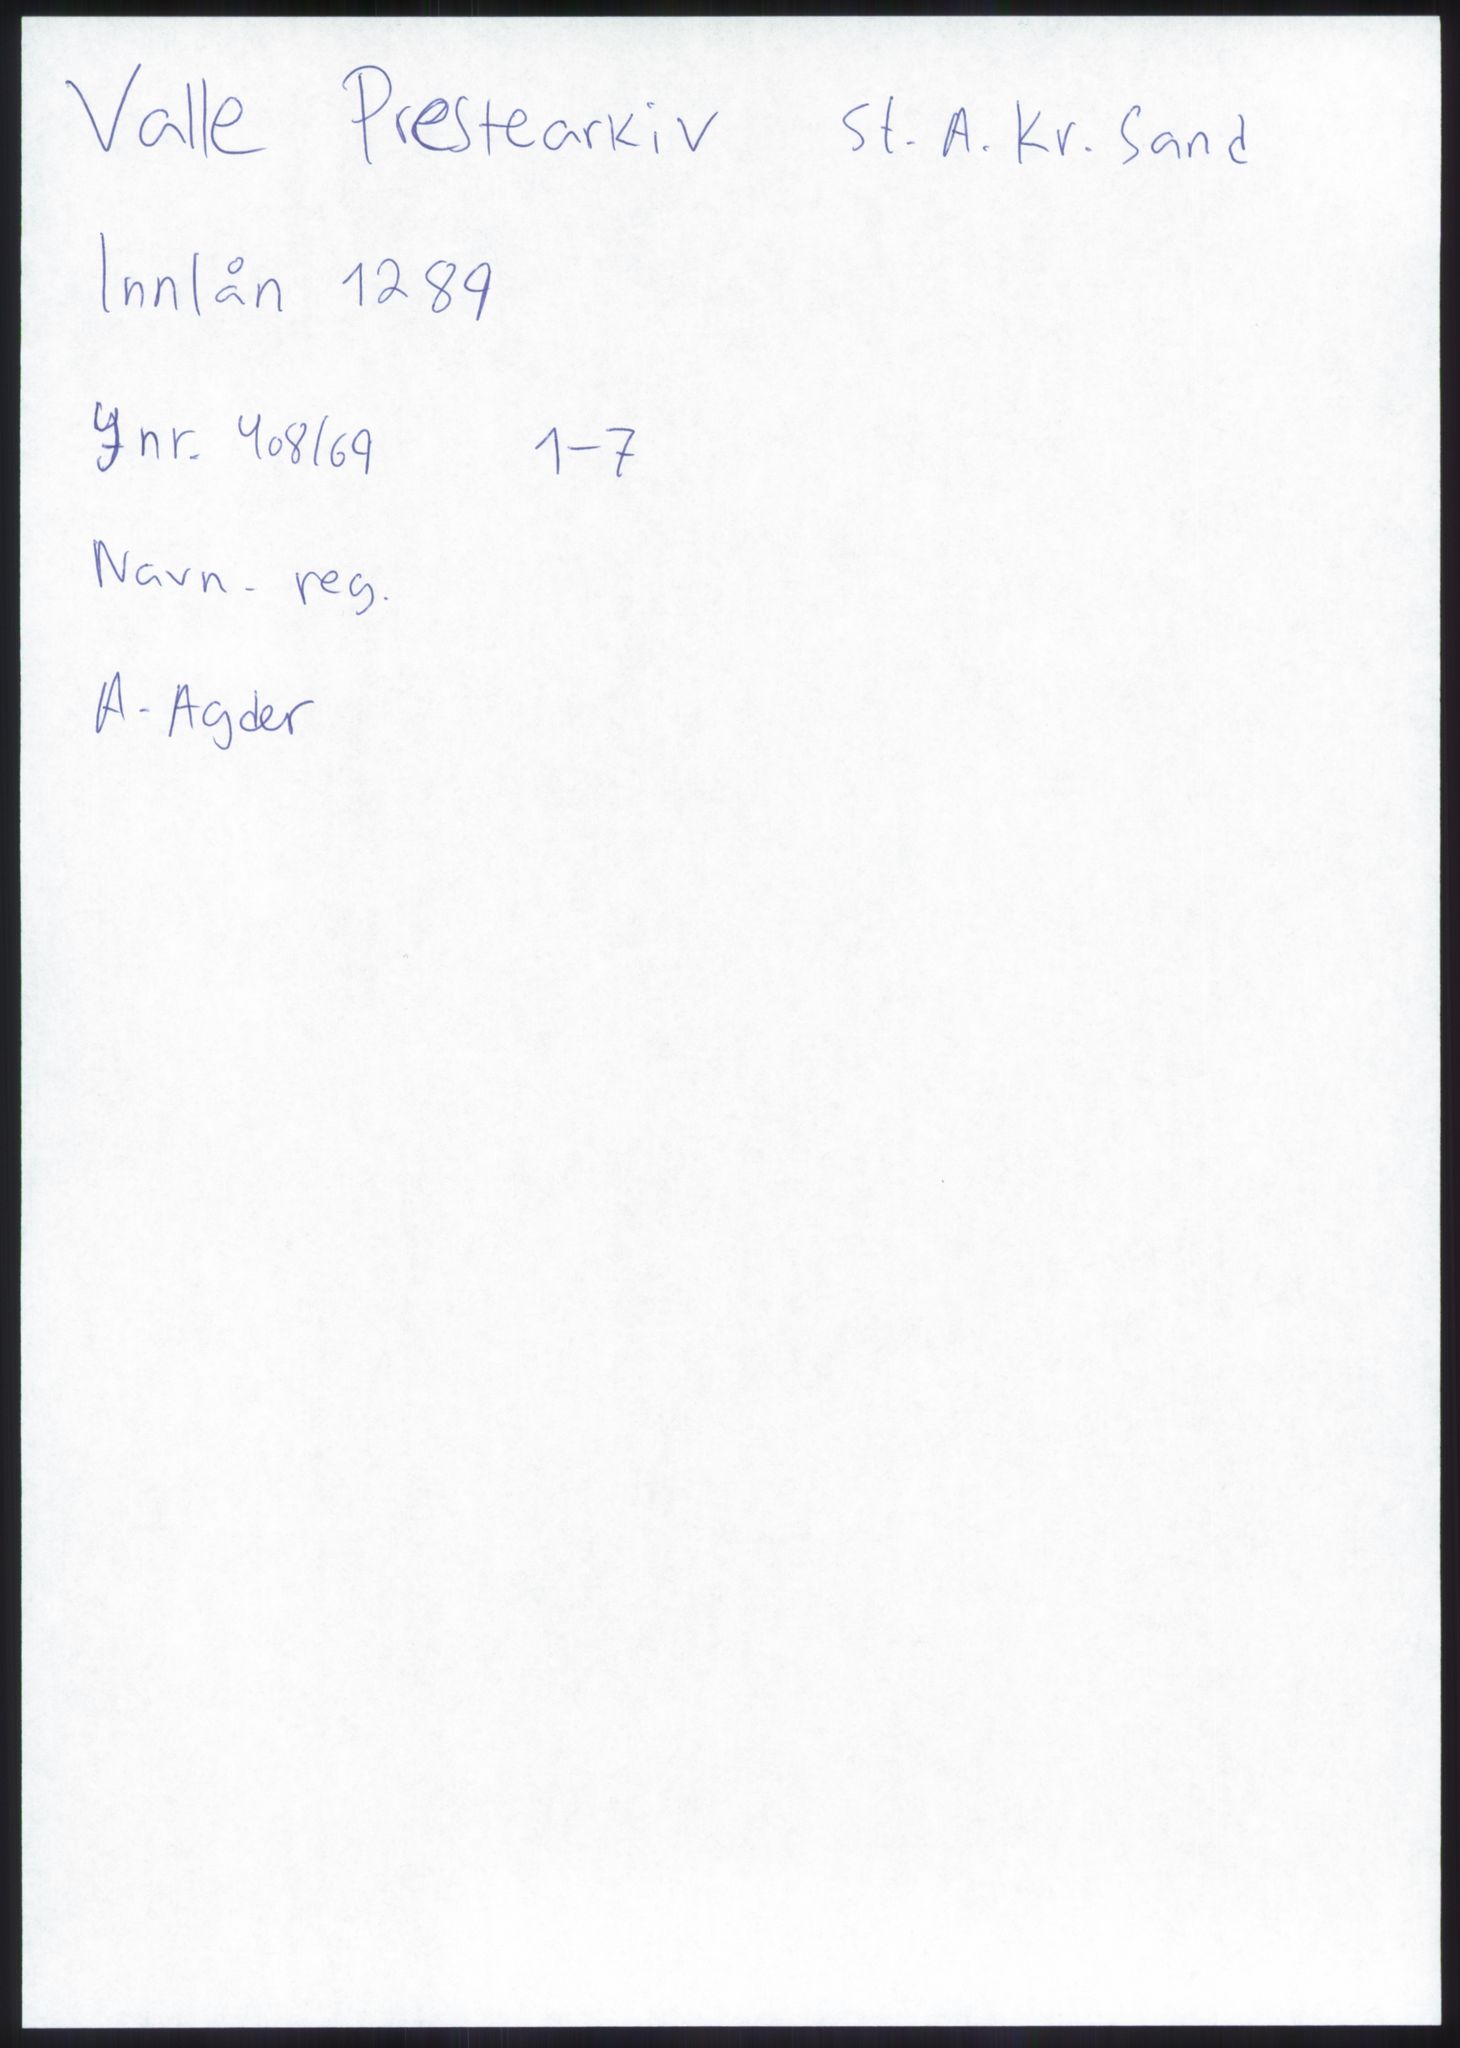 Valle Prestearkiv St. A. Kr. Sand
Innlån 1289
Jnr. 408/69 1-7
Navn-reg.
A-Agder